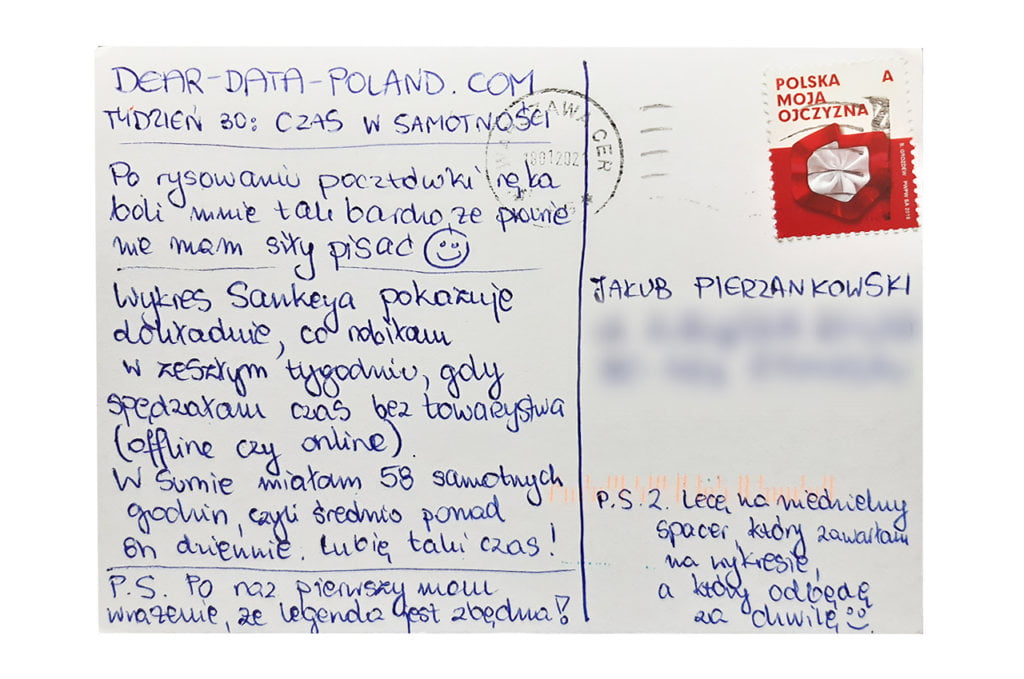 DEAR-DATA-POLAND.COM
TYDZIEŃ 30: CZAS W SAMOTNOŚCI
Po rysowaniu pocztówki ręka
boli mnie tak bardzo, że prawie
nie mam siły pisać
Wykres Sankeya pokazuje
dokładnie, co robiłam
w zeszłym tygodniu, gdy
spędzałam czas bez towarzystwa
(offline czy online).
W sumie miałam 58 samotnych
godzin, czyli średnio ponad
8h dziennie. Lubię taki czas!
P.S. Po raz pierwszy mam
wrażenie, że legenda jest zbędna!
WARSZAWA CER
POLSKA A
MOJA
OJCZYZNA
JAKUB PIERZANKOWSKI
P.S.2. Lecę na niedzielny
spacer, który zawarłam
na wykresie,
a który odbędę
za chwilę